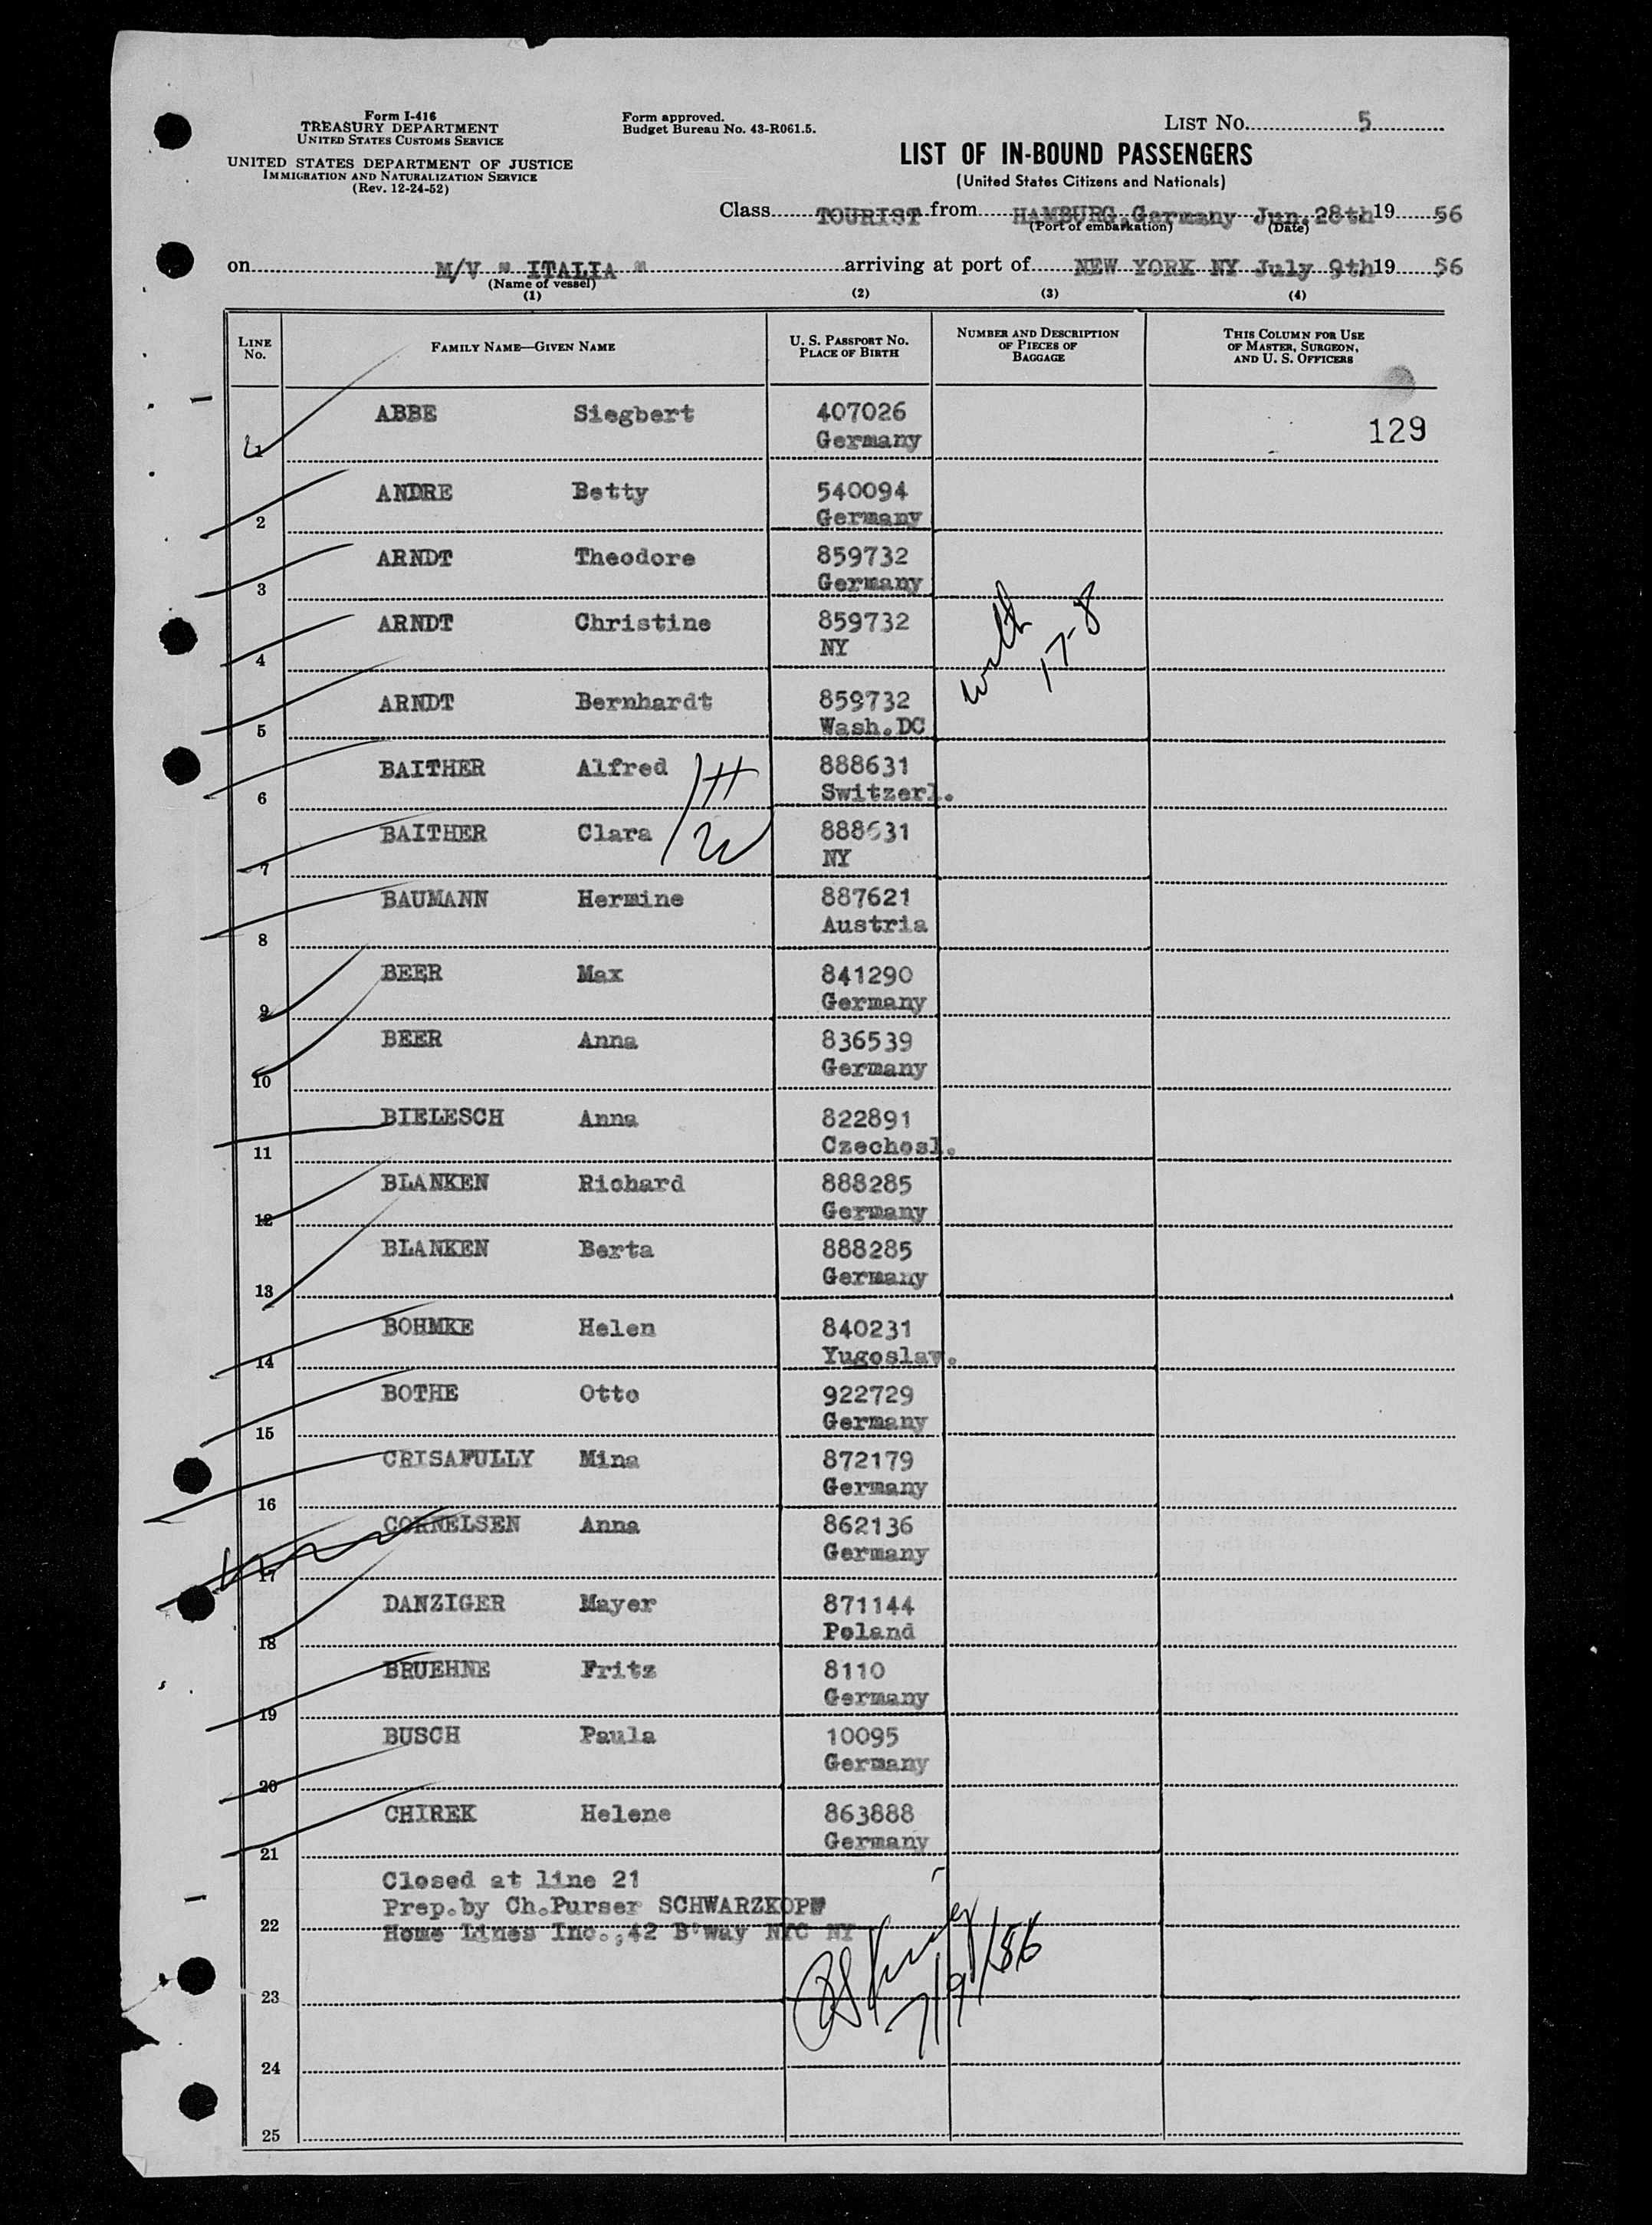 Form I-416
TREASURY DEPARTMENT
UNITED STATES CUSTOMS SERVICE
UNITED STATES DEPARTMENT OF JUSTICE
IMMIGRATION AND NATURALIZATION SERVICE
(Rev. 12-24-52)
Form approved.
Budget Bureau No. 43-R061.5.
LIST No. 5
LIST OF IN-BOUND PASSENGERS
(United States Citizens and Nationals)
Class TOURIST from HAMBURG, Germany Jun. 28th 19 56
(Port of embarkation) (Date)
on M/V " ITALIA " arriving at port of NEW YORK NY July 9th 19 56
(Name of vessel)
(1) (2) (3) (4)
LINE No. FAMILY NAME—GIVEN NAME U. S. PASSPORT No. PLACE OF BIRTH NUMBER AND DESCRIPTION OF PIECES OF BAGGAGE THIS COLUMN FOR USE OF MASTER, SURGEON, AND U. S. OFFICERS
1 ABBE Siegbert 407026 129
Germany
2 ANDRE Betty 540094
Germany
3 ARNDT Theodore 859732
Germany
4 ARNDT Christine 859732
NY
with 17-8
5 ARNDT Bernhardt 859732
Wash.DC
6 BAITHER Alfred H 888631
Switzerl.
7 BAITHER Clara W 888631
NY
8 BAUMANN Hermine 887621
Austria
9 BEER Max 841290
Germany
10 BEER Anna 836539
Germany
11 BIELESCH Anna 822891
Czechosl.
12 BLANKEN Richard 888285
Germany
13 BLANKEN Berta 888285
Germany
14 BOHMKE Helen 840231
Yugoslav.
15 BOTHE Otto 922729
Germany
16 CRISAFULLY Mina 872179
Germany
17 CORNELSEN Anna 862136
Germany
18 DANZIGER Mayer 871144
Poland
19 BRUEHNE Fritz 8110
Germany
20 BUSCH Paula 10095
Germany
21 CHIREK Helene 863888
Germany
Closed at line 21
Prep.by Ch.Purser SCHWARZKOPF
22 Home Lines Inc.,42 B'way NYC NY
7/9/56
23
24
25